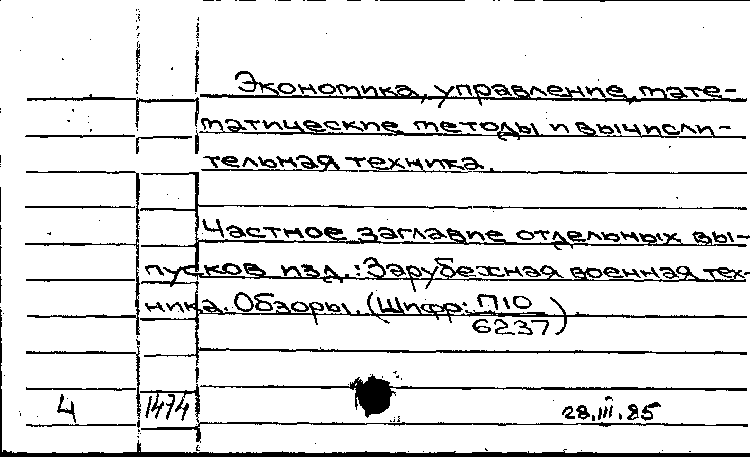 Экономика, управление, мате-
матические методы и вычисли-
тельная техника.
Частное заглавие отдельных вы-
пусков изд.: Зарубежная военная тех-
ника. Обзоры. (Шифр: П10
6237)
4 1474 28.III.85